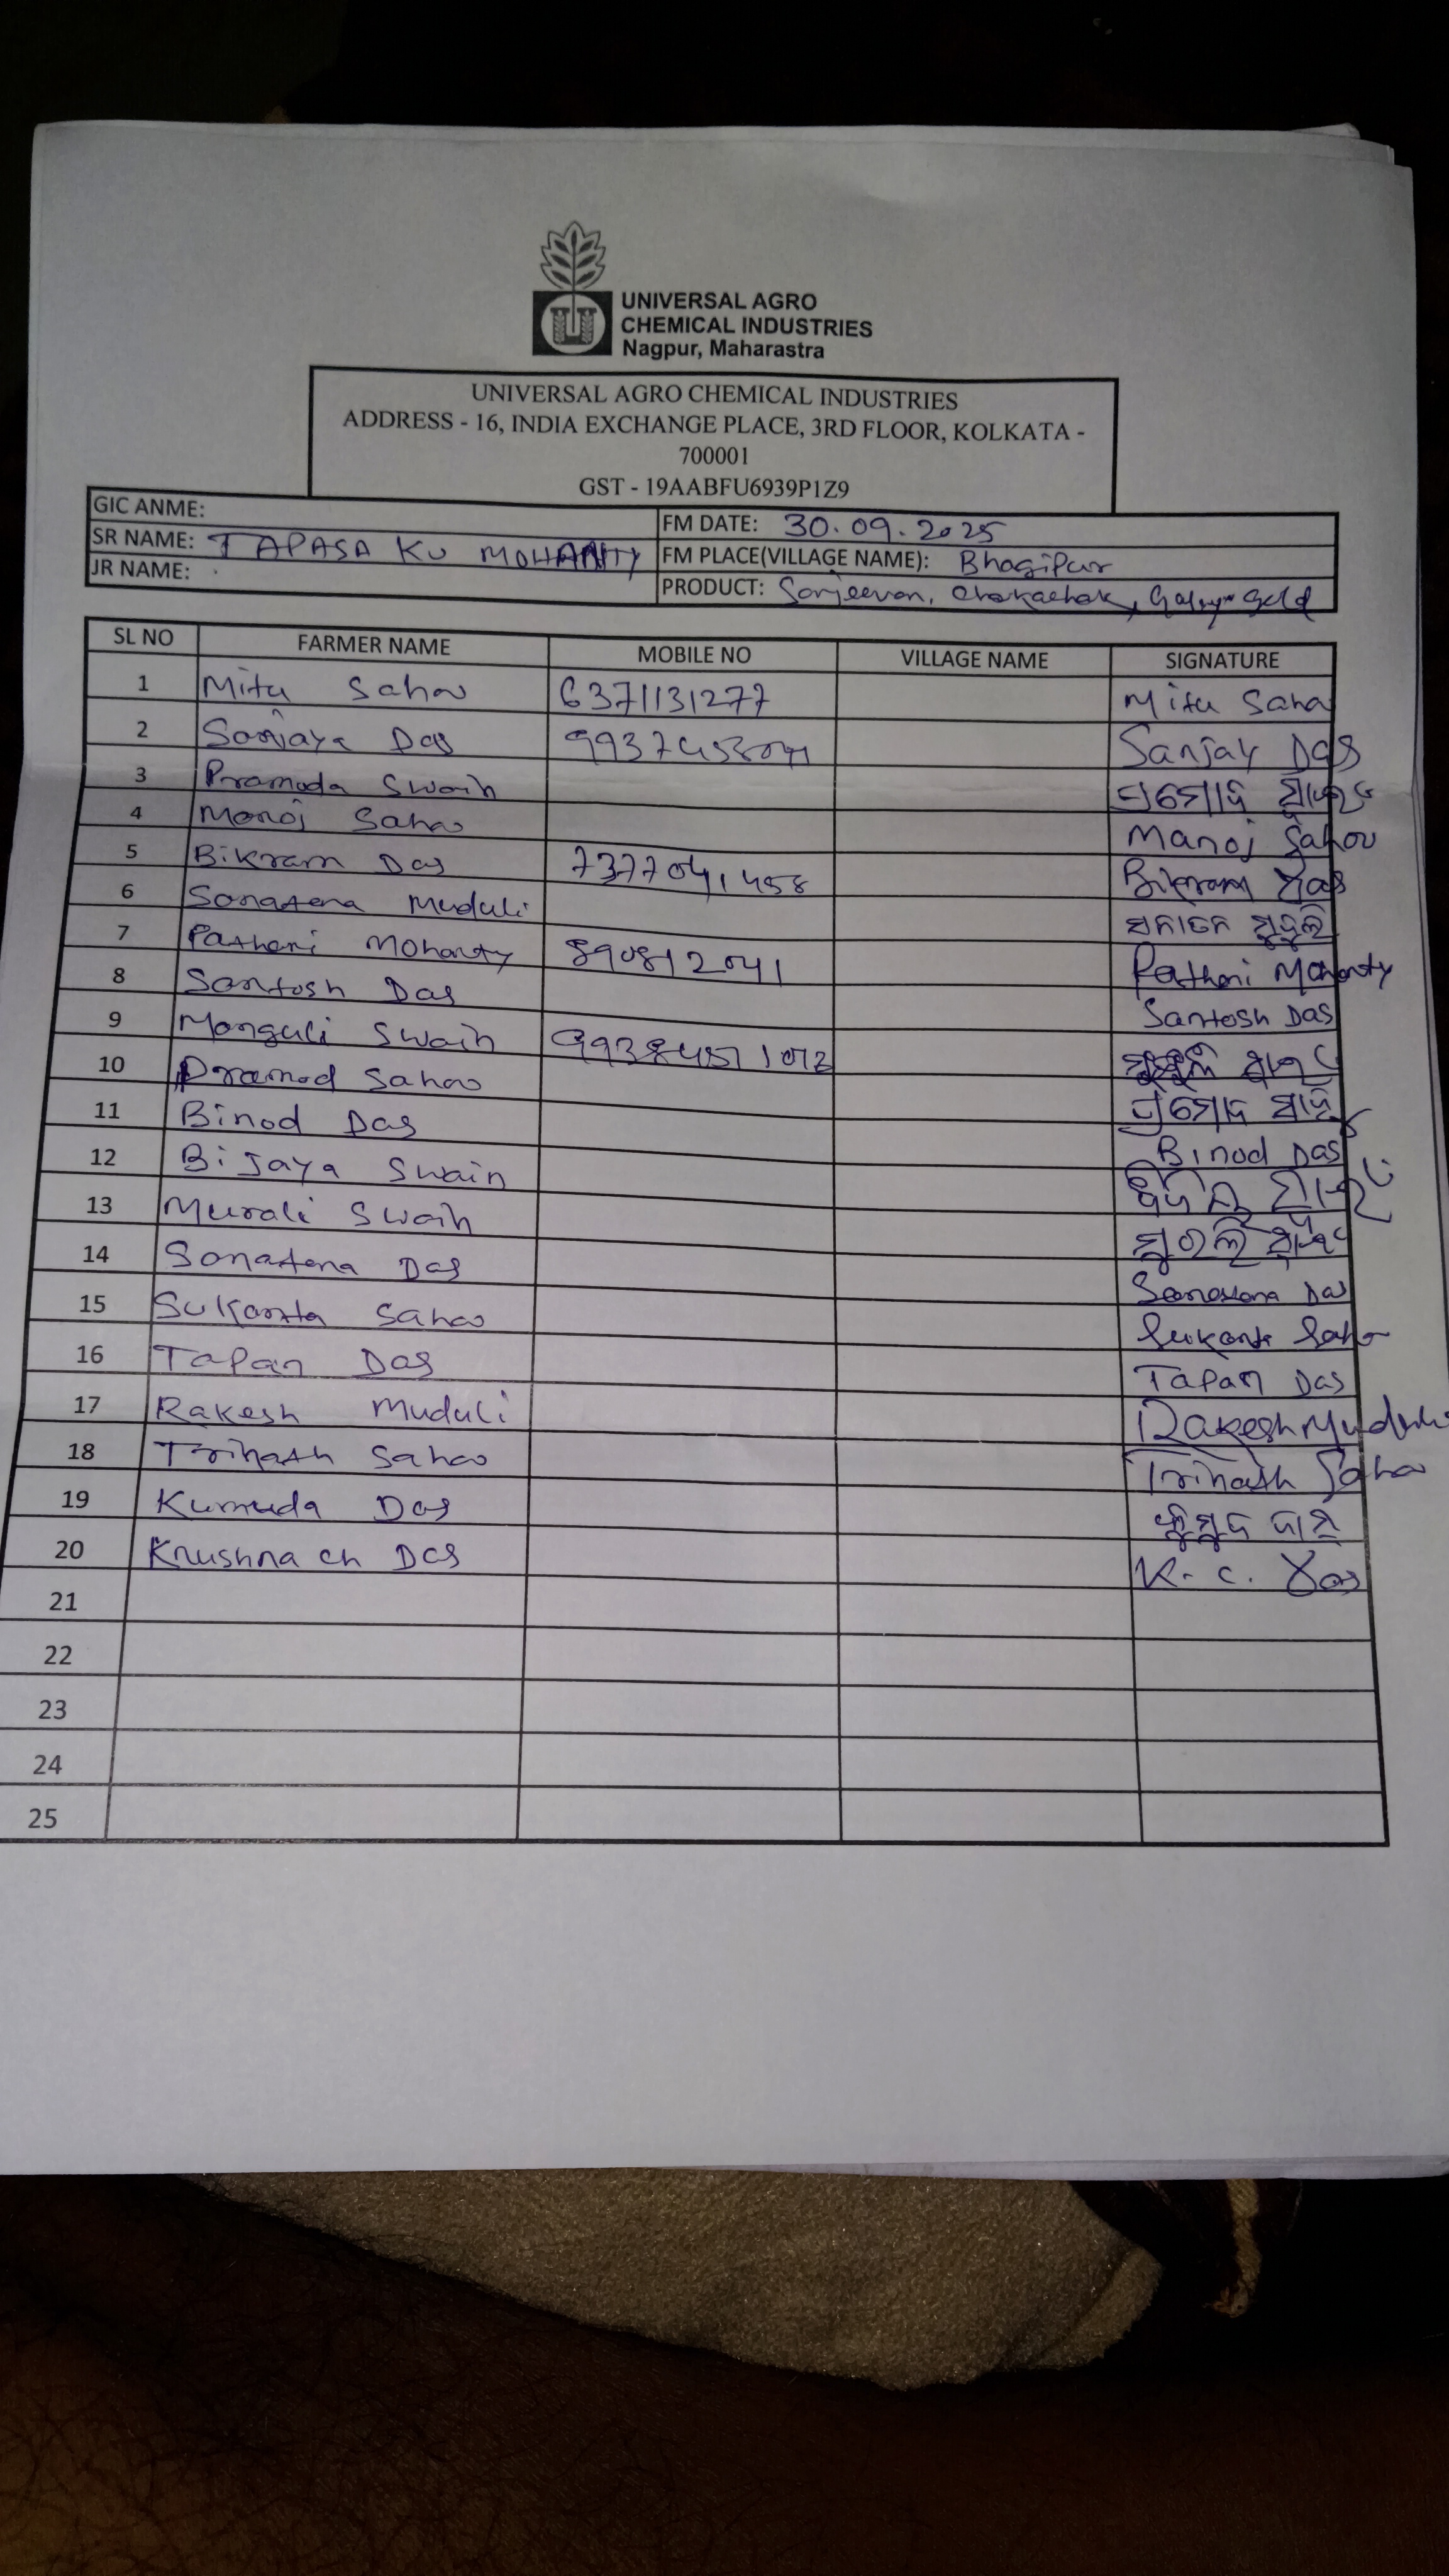 UNIVERSAL AGRO
CHEMICAL INDUSTRIES
Nagpur, Maharastra
UNIVERSAL AGRO CHEMICAL INDUSTRIES
ADDRESS - 16, INDIA EXCHANGE PLACE, 3RD FLOOR, KOLKATA -
700001
GST - 19AABFU6939P1Z9
GIC ANME:
FM DATE: 30.09.2025
SR NAME: TAPASA KU MOHANTY
FM PLACE(VILLAGE NAME): Bhagipur
JR NAME:
PRODUCT: Sanjeevan, Chakachak, Gold
SL NO FARMER NAME MOBILE NO VILLAGE NAME SIGNATURE
1 Mitu Sahoo 6371131277 Mitu Sahoo
2 Sanjaya Das Sanjay Das
3 Pramoda Swain ପ୍ରମୋଦ ସ୍ୱାଇଁ
4 Manoj Sahoo Manoj Sahoo
5 Bikram Das 7377041458 Bikram Das
6 Sanatana Muduli ସନାତନ ମୁଦୁଲି
7 Pathani Mohanty 890812041 Pathani Mohanty
8 Santosh Das Santosh Das
9 Manguli Swain ସ୍ୱାଇଁ
10 Pramod Sahoo ପ୍ରମୋଦ ସାହୁ
11 Binod Das Binod Das
12 Bijaya Swain ବିଜୟ ସ୍ୱାଇଁ
13 Murali Swain ମୁରଲି ସ୍ୱାଇଁ
14 Sanatana Das Sanatana Das
15 Sukanta Sahoo Sukanta Sahoo
16 Tapan Das Tapan Das
17 Rakesh Muduli Rakesh Muduli
18 Trinath Sahoo Trinath Sahoo
19 Kumuda Das କୁମୁଦ ଦାସ
20 Krushna ch Das K. C. Das
21
22
23
24
25